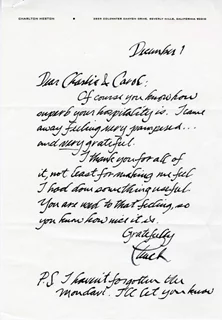 CHARLTON HESTON 2859 COLDWATER CANYON DRIVE, BEVERLY HILLS, CALIFORNIA 90210
December 1
Dear Charlie & Carol:
Of course you know how
superb your hospitality is. I came
away feeling very pampered...
and very grateful.
I thank you for all of
it, not least for making me feel
I had done something useful.
You are used to that feeling, so
you know how nice it is.
Gratefully
Chuck
P.S. I haven't forgotten the
Mondavi. I'll let you know